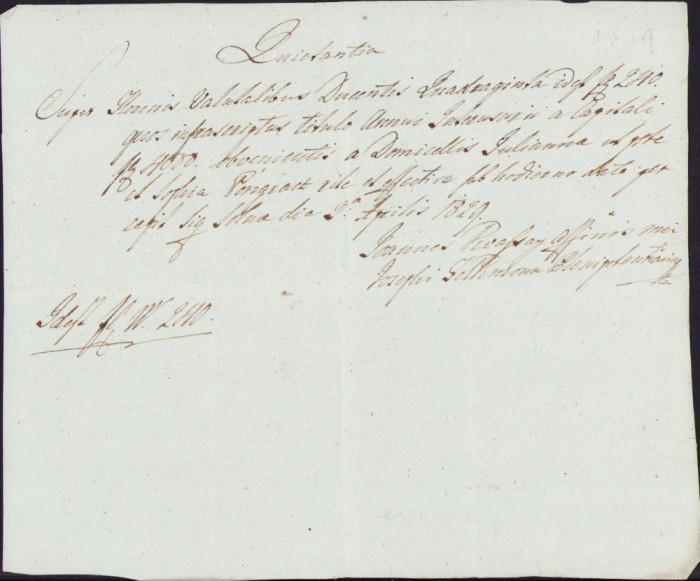 Quietantia
Super Florenis Valutalibus Ducentis Quadraginta idest fl 240.
quos infrascriptus titulo Annui Interusurii a Capitali
fl 4000. obvenientis a Domicellis Julianna
et Sophia Pongracz rite et effective sub hodierno dato per
cepi Sig Solnae die 2a Aprilis 1829.
Joannes affinis mei
Josephi Plenipotentiarius
Idest fl W. 240.